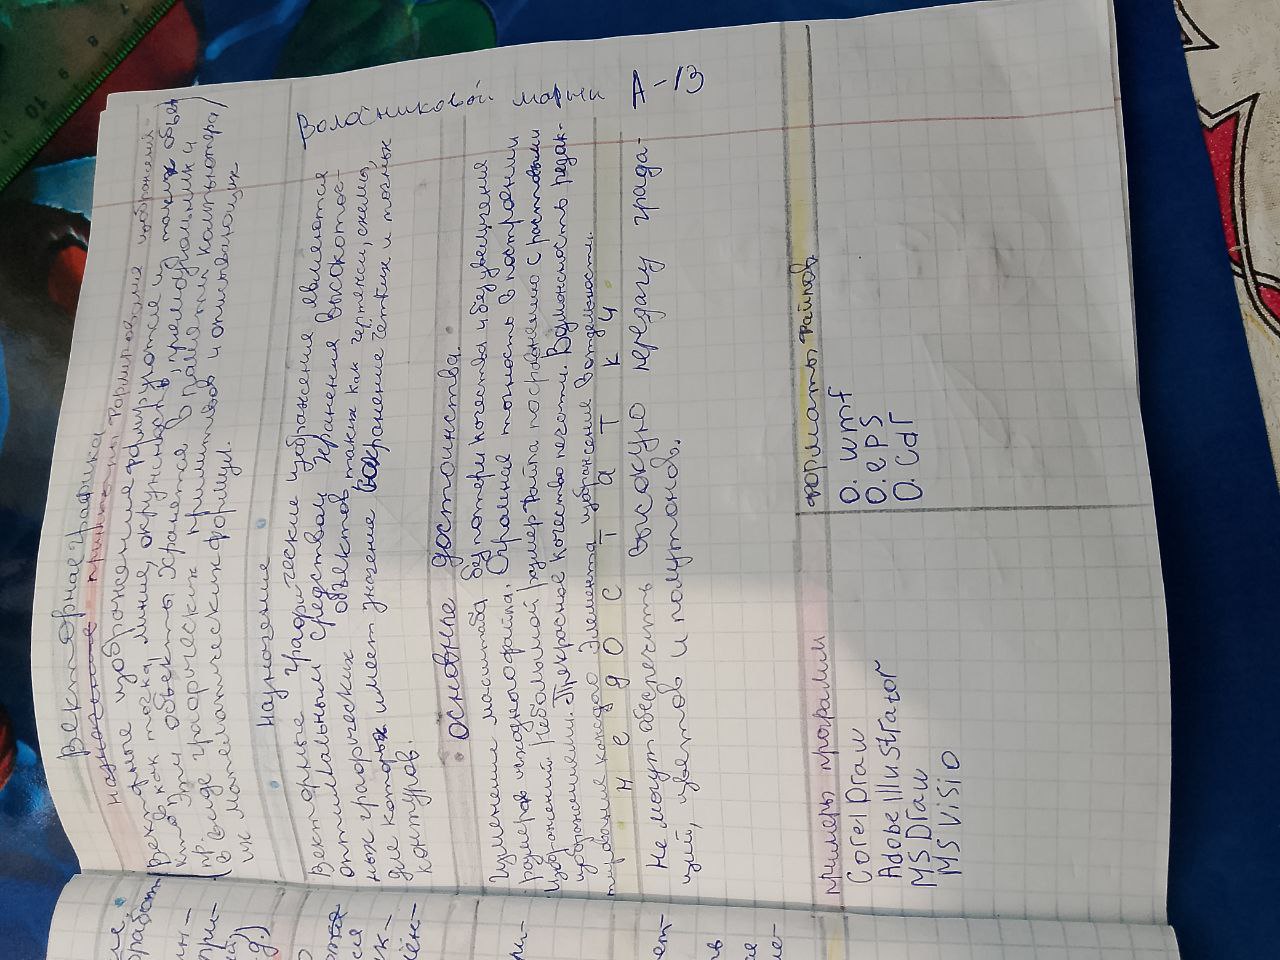 Векторная графика
назначение принципы формирования изображений.
Векторные изображение формируются из таких объек
ктов как точка, линие, окружность, прямоугольник и
пр. Эти объекты хранятся в памяти компьютера
(в виде графических примитивов и описывающих
их математических формул.
назначение
Волойниковой марии А-13
Векторные графические изображение являются
оптимальным средством хранения высокоточ-
ных графических объектов таких как чертежи, схемы,
дле которых имеет значение сохранение чётких и ясных
контуров.
основные достоинства.
Изменение масштаба без потери качества и без увеличения
размеров исходного файла. Огромная точность в построении
изображений. Небольшой размер файла по сравнению с растровыми
изображениеми. Прекрасное качество печати. Возможность редак-
тирование каждого элемента изображение в отдельности.
недостатки
Не могут обеспечить высокую передачу града-
ций, цветов и полутонов.
примеры программ
Corel Draw
Adobe Illustrator
MS Draw
MS Visio
форматы файлов
0. wmf
0. eps
0. cdr